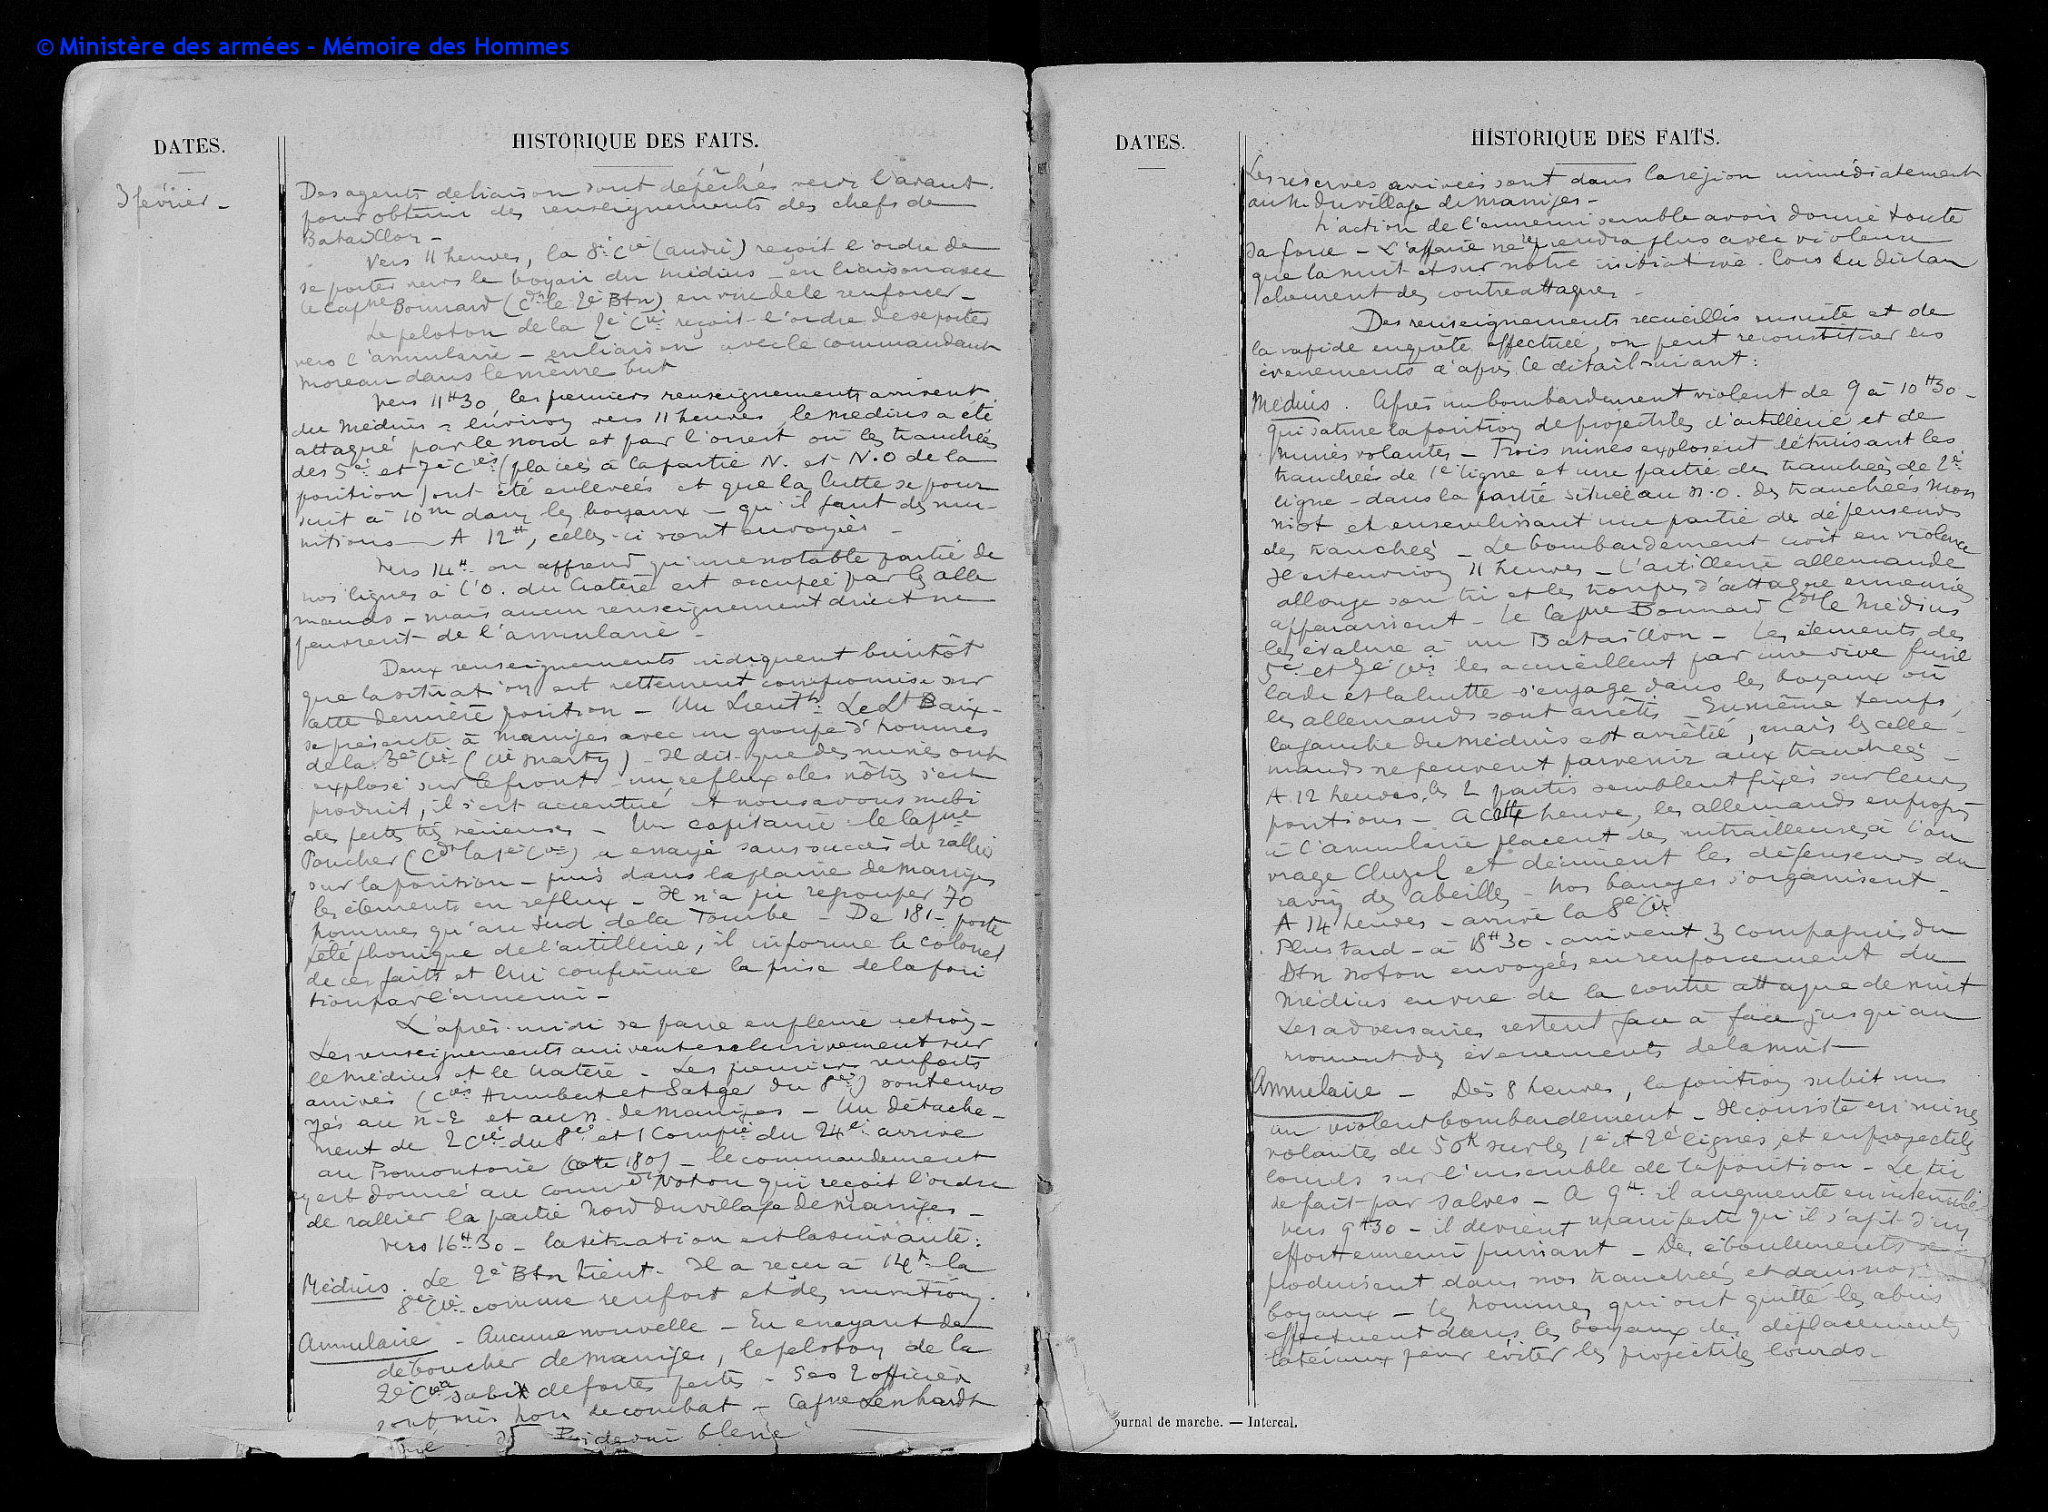 © Ministère des armées - Mémoire des Hommes
DATES.
HISTORIQUE DES FAITS.
3 février -
Des agents de liaison sont dépêchés vers l'avant
pour obtenir des renseignements des chefs de
Bataillon -
Vers 11 heures, la 8e Cie (André) reçoit l'ordre de
se porter vers le boyau du Médius - en liaison avec
le Capne Bonnard (Cdt le 2e Btn) en vue de le renforcer -
Le peloton de la 2e Cie reçoit l'ordre de se porter
vers l'annulaire - en liaison avec le commandant
Moreau dans le même but
Vers 11H30 les premiers renseignements arrivent
du Médius - environ vers 11 heures le Médius a été
attaqué par le nord et par l'ouest où les tranchées
des 5e et 7e Cies (placées à la partie N. et N.O de la
position) ont été enlevées et que la lutte se pour
suit à 10m dans les boyaux - qu'il faut des mu-
nitions - A 12H, celles-ci sont envoyées -
Vers 14H on apprend qu'une notable partie de
nos lignes à l'O. du Cratère est occupée par les alle
mands - mais aucun renseignement direct ne
parvient de l'annulaire -
Deux renseignements indiquent bientôt
que la situation est nettement compromise sur
cette dernière position - Un Lieutt: Le Lt Baix -
se présente à Massiges avec un groupe d'hommes
de la 3e Cie (Cie Marty) - Il dit que des mines ont
explosé sur le front - un reflux des nôtres s'est
produit, il s'est accentué et nous avons subi
des pertes très sérieuses - Un capitaine: le Capne
Paucher (Cdt la 1e Cie) a essayé sans succès de rallier
sur la position - puis dans la plaine de Massiges
les éléments en reflux - Il n'a pu regrouper 70
hommes qu'au Sud de la Tourbe - De 181 - poste
téléphonique de l'artillerie, il informe le colonel
de ces faits et lui confirme la prise de la posi
tion par l'ennemi -
L'après-midi se passe en pleine action -
Les renseignements arrivent exclusivement sur
le Médius et le Cratère - Les premiers renforts
arrivés (Cies Humbert et Satger du 8e) sont envo
yés au N-E et au N. de Massiges - Un détache-
ment de 2 Cies du 8e et 1 Compie du 24e arrive
au Promontoire (cote 180) - le commandement
y est donné au commdt Noton qui reçoit l'ordre
de rallier la partie Nord du village de Massiges -
Vers 16H30 - la situation est la suivante:
Médius. Le 2e Btn tient - Il a reçu à 14h la
8e Cie comme renfort et des munitions.
Annulaire - Aucune nouvelle - En essayant de
déboucher de Massiges, le peloton de la
2e Cie a subi de fortes pertes - Ses 2 officiers
sont mis hors de combat - Capne Lenhardt
blessé
DATES.
HISTORIQUE DES FAITS.
Les réserves arrivées sont dans la région immédiatement
au N. du village de Massiges -
L'action de l'ennemi semble avoir donné toute
sa force - L'affaire ne reprendra plus avec violence
que la nuit et sur notre initiative lors du déclan
chement des contre attaques -
Des renseignements recueillis ensuite et de
la rapide enquête effectuée, on peut reconstituer les
évènements d'après le détail suivant:
Médius. Après un bombardement violent de 9 à 10H30 -
qui sature la position de projectiles d'artillerie et de
mines volantes - Trois mines explosent détruisant les
tranchées de 1e ligne et une partie des tranchées de 2e
ligne - dans la partie située au N.O. des tranchées Mon
niot et ensevelissant une partie des défenseurs
des tranchées - Le bombardement croît en violence
Il est environ 11 heures - L'artillerie allemande
allonge son tir et les troupes d'attaque ennemies
apparaissent - Le Capne Bonnard Cdt le Médius
les évalue à un Bataillon - Les éléments des
5e et 7e Cies les accueillent par une vive fusil
lade et la lutte s'engage dans les boyaux où
les allemands sont arrêtés En même temps,
la gauche du Médius est arrêtée, mais les alle -
mands ne peuvent parvenir aux tranchées -
A 12 heures, les 2 partis semblent fixés sur leurs
positions - A cette heure, les allemands en progrès
à l'annulaire placent des mitrailleuses à l'ou
vrage Cluzel et déciment les défenseurs du
ravin des Abeilles - Nos barrages s'organisent -
A 14 heures - arrive la 8e Cie
Plus tard - à 18H30 - arrivent 3 compagnies du
Btn Noton envoyées en renforcement du
Médius en vue de la contre attaque de nuit
Les adversaires restent face à face jusqu'au
moment des évènements de la nuit -
Annulaire - Dès 8 heures, la position subit un
un violent bombardement - Il consiste en mines
volantes de 50K sur les 1e et 2e lignes, et en projectiles
lourds sur l'ensemble de la position - Le tir
se fait par salves - A 9H. il augmente en intensité
vers 9H30 - il devient manifeste qu'il s'agit d'un
effort ennemi puissant - Des éboulements se
produisent dans nos tranchées et dans nos
boyaux - les hommes qui ont quitté les abris
effectuent dans les boyaux des déplacements
latéraux pour éviter les projectiles lourds.
Journal de marche. — Intercal.